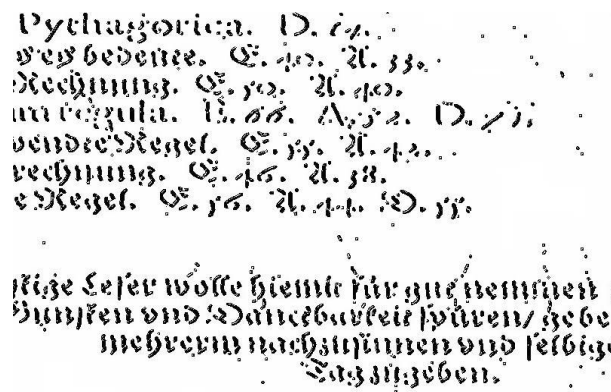 Pythagorica. D. 14.
bedeute. E. 40. A. 33.
Rechnung. E. 50. A. 40.
regula. E. 66. A. 52. D.
Regel. E. 55. A. 42.
rechnung. E. 46. A. 38.
Regel. E. 56. A. 44. D. 55.
Leser wolle hiemit für gut nemmen
vnd Danckbarkeit spüren/ gebe
mehrerm nachzusinnen vnd selbige
Tag zugeben.